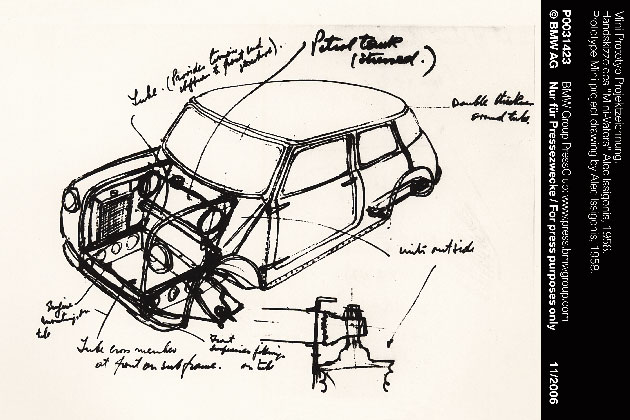 Petrol tank
(strused.)
Tube. (Provides torsional
stiffness & front end
structure).
Double thickness
around tube.
units outside
Engine
mounting on
tube
Tube cross member
at front on subframe.
Front
suspension fittings
on tube
P0031423
© BMW AG
Nur für Pressezwecke / For press purposes only
11/2006
Mini Prototyp Projektzeichnung
Handskizze des "Mini-Vaters" Alec Issigonis, 1958.
Prototype Mini project drawing by Alec Issigonis, 1958.